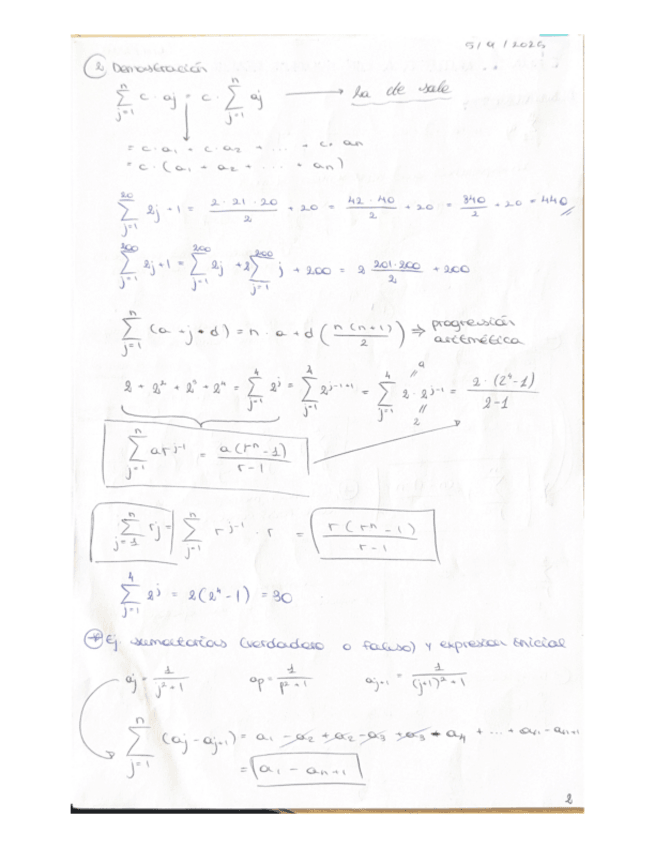 5/9/2025
2 Demostración
n ∑ j=1 c · aj = c · n ∑ j=1 aj → ha de salir
= c · a1 + c · a2 + ... + c · an
= c · (a1 + a2 + ... + an)
20 ∑ j=1 2j + 1 = 2 · 21 · 20 / 2 + 20 = 42 · 40 / 2 + 20 = 840 / 2 + 20 = 440
200 ∑ j=1 2j+1 = 200 ∑ j=1 2j + 2 200 ∑ j=1 j + 200 = 2 201·200 / 2 + 200
n ∑ j=1 (a + j · d) = n · a + d (n(n+1) / 2) ⇒ progresión aritmética
2 + 2² + 2³ + 2⁴ = 4 ∑ j=1 2^j = 4 ∑ j=1 2^j-1+1 = 4 ∑ j=1 2 · 2^j-1 = 2 · (2⁴-1) / 2-1
n ∑ j=1 ar^j-1 = a(r^n - 1) / r-1
n ∑ j=1 rj = n ∑ j=1 r^j-1 · r = r(r^n - 1) / r-1
4 ∑ j=1 2^j = 2(2⁴-1) = 30
Ej. sumatorias (verdadero o falso) y expresión inicial
aj = 1 / j²+1 ap = 1 / p²+1 aj+1 = 1 / (j+1)²+1
n ∑ j=1 (aj - aj+1) = a1 - a2 + a2 - a3 + a3 - a4 + ... + an - an+1
= a1 - an+1
2